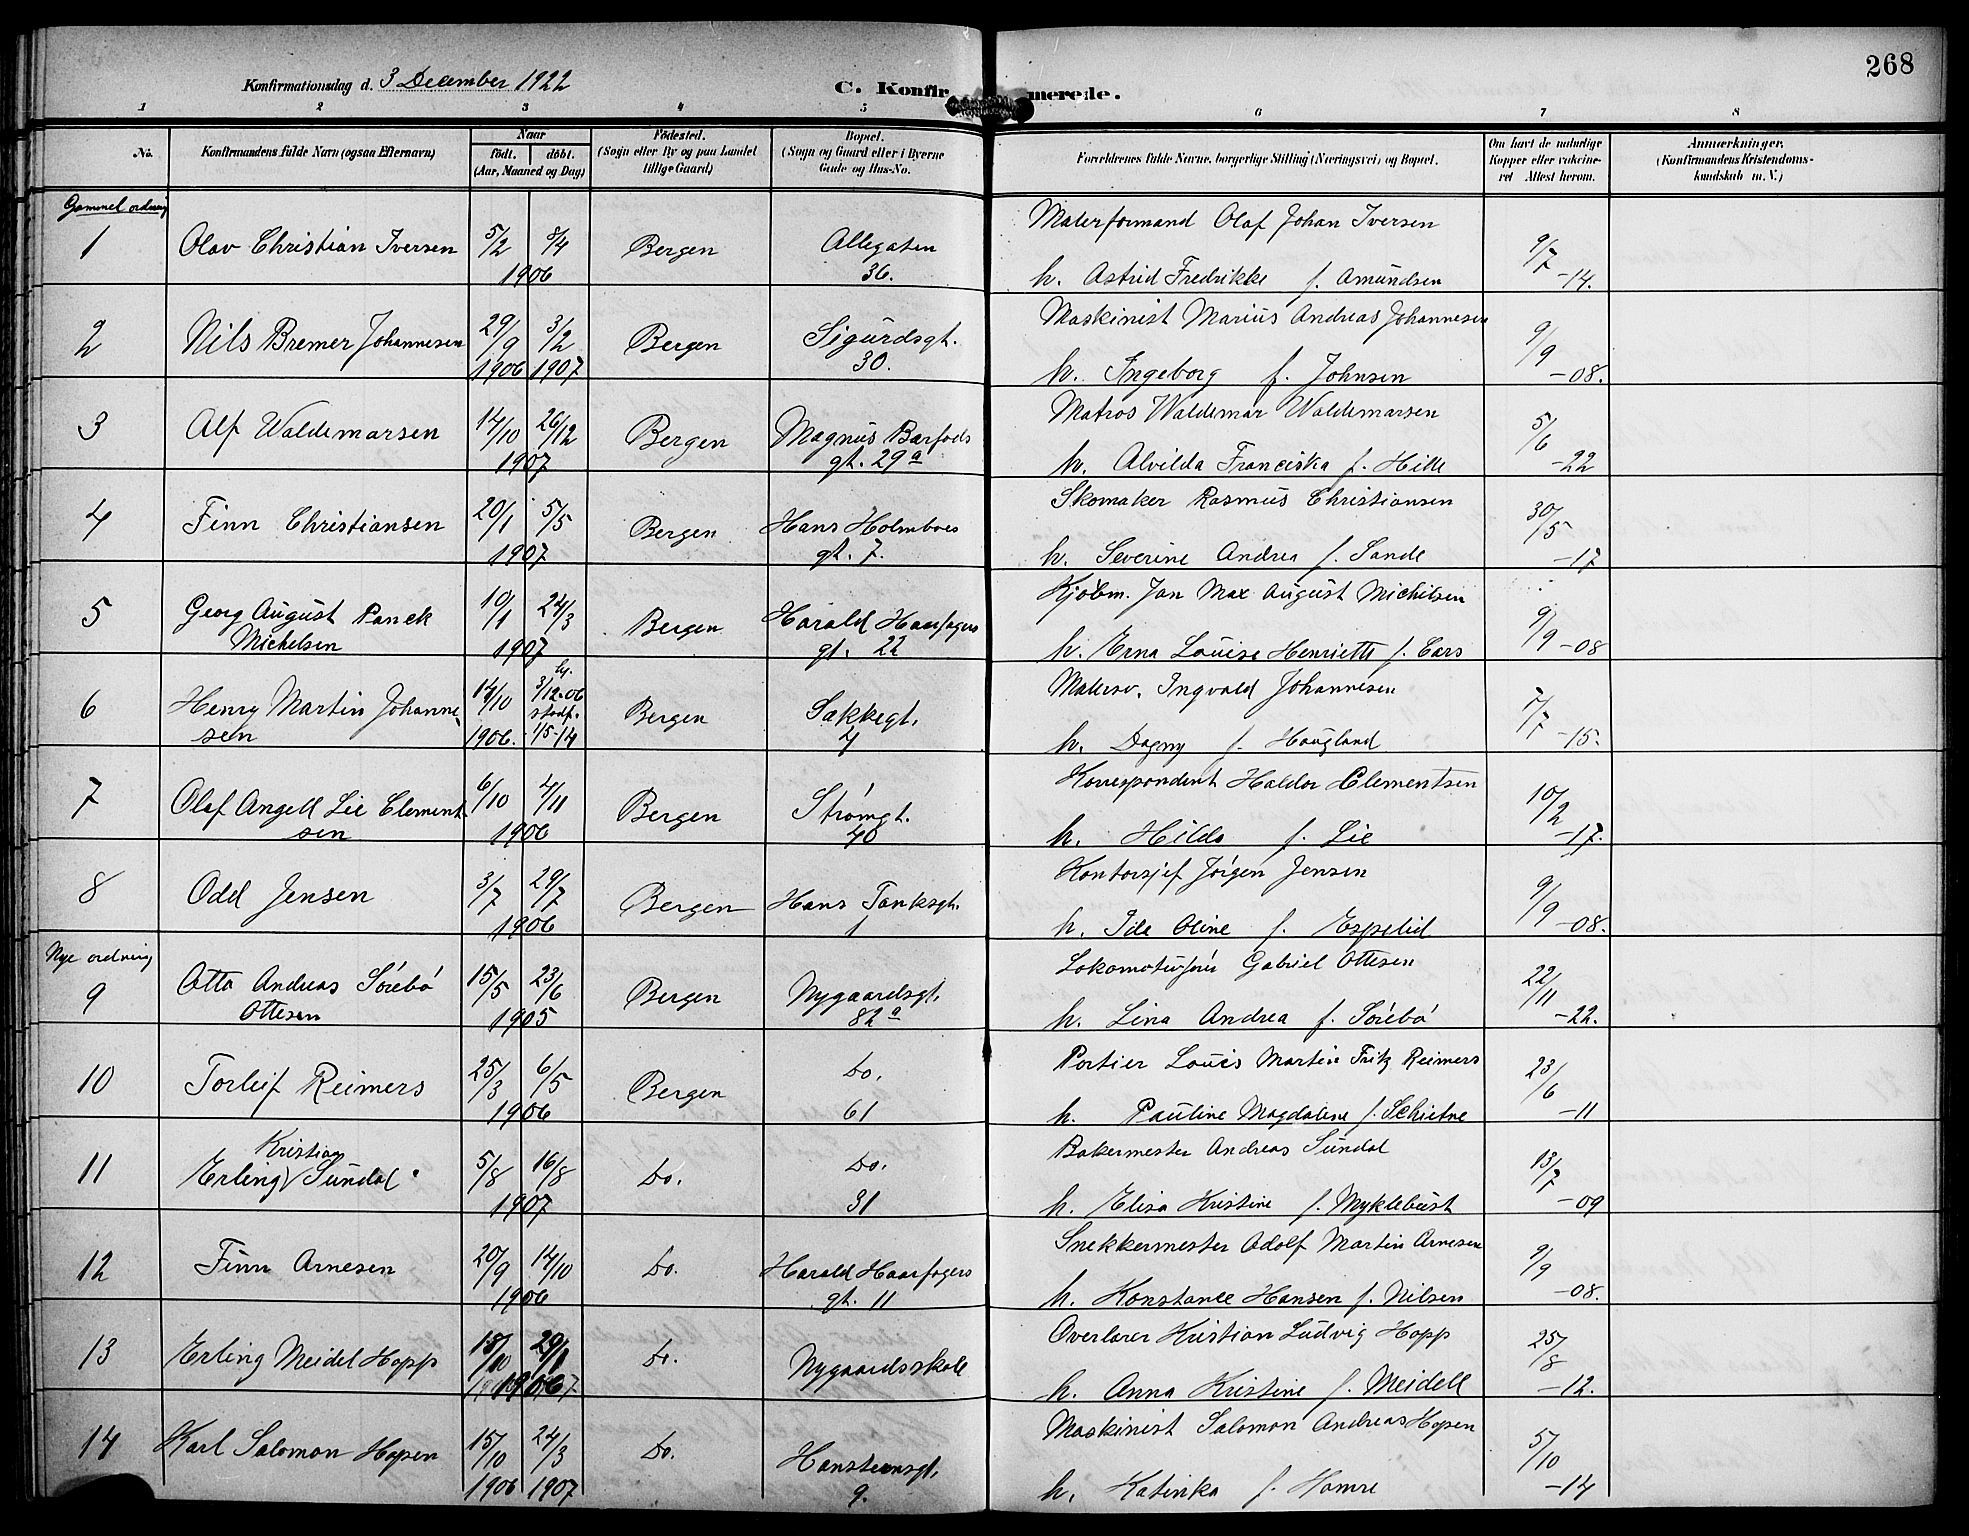 268
Konfirmationsdag d. 3 December 1922
C. Konfirmerede.
1 2 3 4 5 6 7 8
No.
Konfirmandens fulde Navn (ogsaa Efternavn)
Naar
födt. döbt.
(Aar, Maaned og Dag)
Födested.
(Sogn eller By og paa Landet
tillige Gaard)
Bopæl.
(Sogn og Gaard eller i Byerne
Gade og Hus-No.
Forældrenes fulde Navne, borgerlige Stilling (Næringsvei) og Bopæl.
Om havt de naturlige
Kopper eller vakcine-
ret Attest herom.
Anmærkninger.
(Konfirmandens Kristendoms-
kundskab m. V.)
Gammel ordning
1 Olav Christian Iversen 5/2 8/4 1906 Bergen Allegaten
36.
Malerformand Olaf Johan Iversen
h. Astrid Fredrikke f. Amundsen 9/7 -14.
2 Nils Bremer Johannesen 29/9 1906 3/2 1907 Bergen Sigurdsgt.
30.
Maskinist Marius Andreas Johannesen
h. Ingeborg f. Johnsen 9/9 -08.
3 Alf Waldemarsen 14/10 26/12 1907 Bergen Magnus Barfods
gt. 29a
Matros Waldemar Waldemarsen
h. Alvilda Franciska f. Hille 5/6 -22
4 Finn Christiansen 20/1 5/5 1907 Bergen Hans Holmboes
gt. 7.
Skomaker Rasmus Christiansen
h. Severine Andrea f. Sande 30/5 -17
5 Georg August Panck
Michelsen 10/1 24/3 1907 Bergen Harald Haarfagers
gt. 22
Kjöbm. Jan Max August Michelsen
h. Erna Louise Henriette f. Cars 9/9 -08
6 Henry Martin Johanne-
sen 14/10 1906. hj. 3/12-06
stadf.
1/5-14 Bergen Sakkegt.
4
Malersv. Ingvald Johannesen
h. Dagny f. Haugland 7/7 -15.
7 Olaf Angell Lie Clement-
sen 6/10 4/11 1906 Bergen Strømgt.
40
Korrespondent Haldor Clementsen
h. Hilda f. Lie 10/2 -17.
8 Odd Jensen 3/7 29/7 1906 Bergen Hans Tanksgt.
1
Kontorsjef Jørgen Jensen
h. Ida Oline f. Espelid 9/9 -08.
Nye ordning
9 Otto Andreas Sörebö
Ottesen 15/5 23/6 1905 Bergen Nygaardsgt.
82a
Lokomotivförer Gabriel Ottesen
h. Lina Andrea f. Sörebö 22/11 -22.
10 Torleif Reimers 25/3 6/5 1906 Bergen Do.
61
Portier Louis Martin Fritz Reimers
h. Pauline Magdalene f. Schietne 23/6 -11
11 Kristian
Erling Sundal 5/8 16/8 1907 Do. Do.
31
Bakermester Andreas Sundal
h. Elisa Kristine f. Myklebust 13/7 -09
12 Finn Arnesen 20/9 14/10 1906 Do. Harald Haarfagers
gt. 11
Snekkermester Adolf Martin Arnesen
h. Konstance Hansen f. Nilsen 9/9 -08.
13 Erling Meidel Hopp 15/10 29/1 Do. Nygaardsskole
Overlærer Kristian Ludvig Hopp
h. Anna Kristine f. Meidell 25/8 -12.
14 Karl Salomon Hopen 15/10 1906 24/3 1907 Do. Hansteensgt.
9.
Maskinist Salomon Andreas Hopen
h. Katinka f. Hamre 5/10 -14